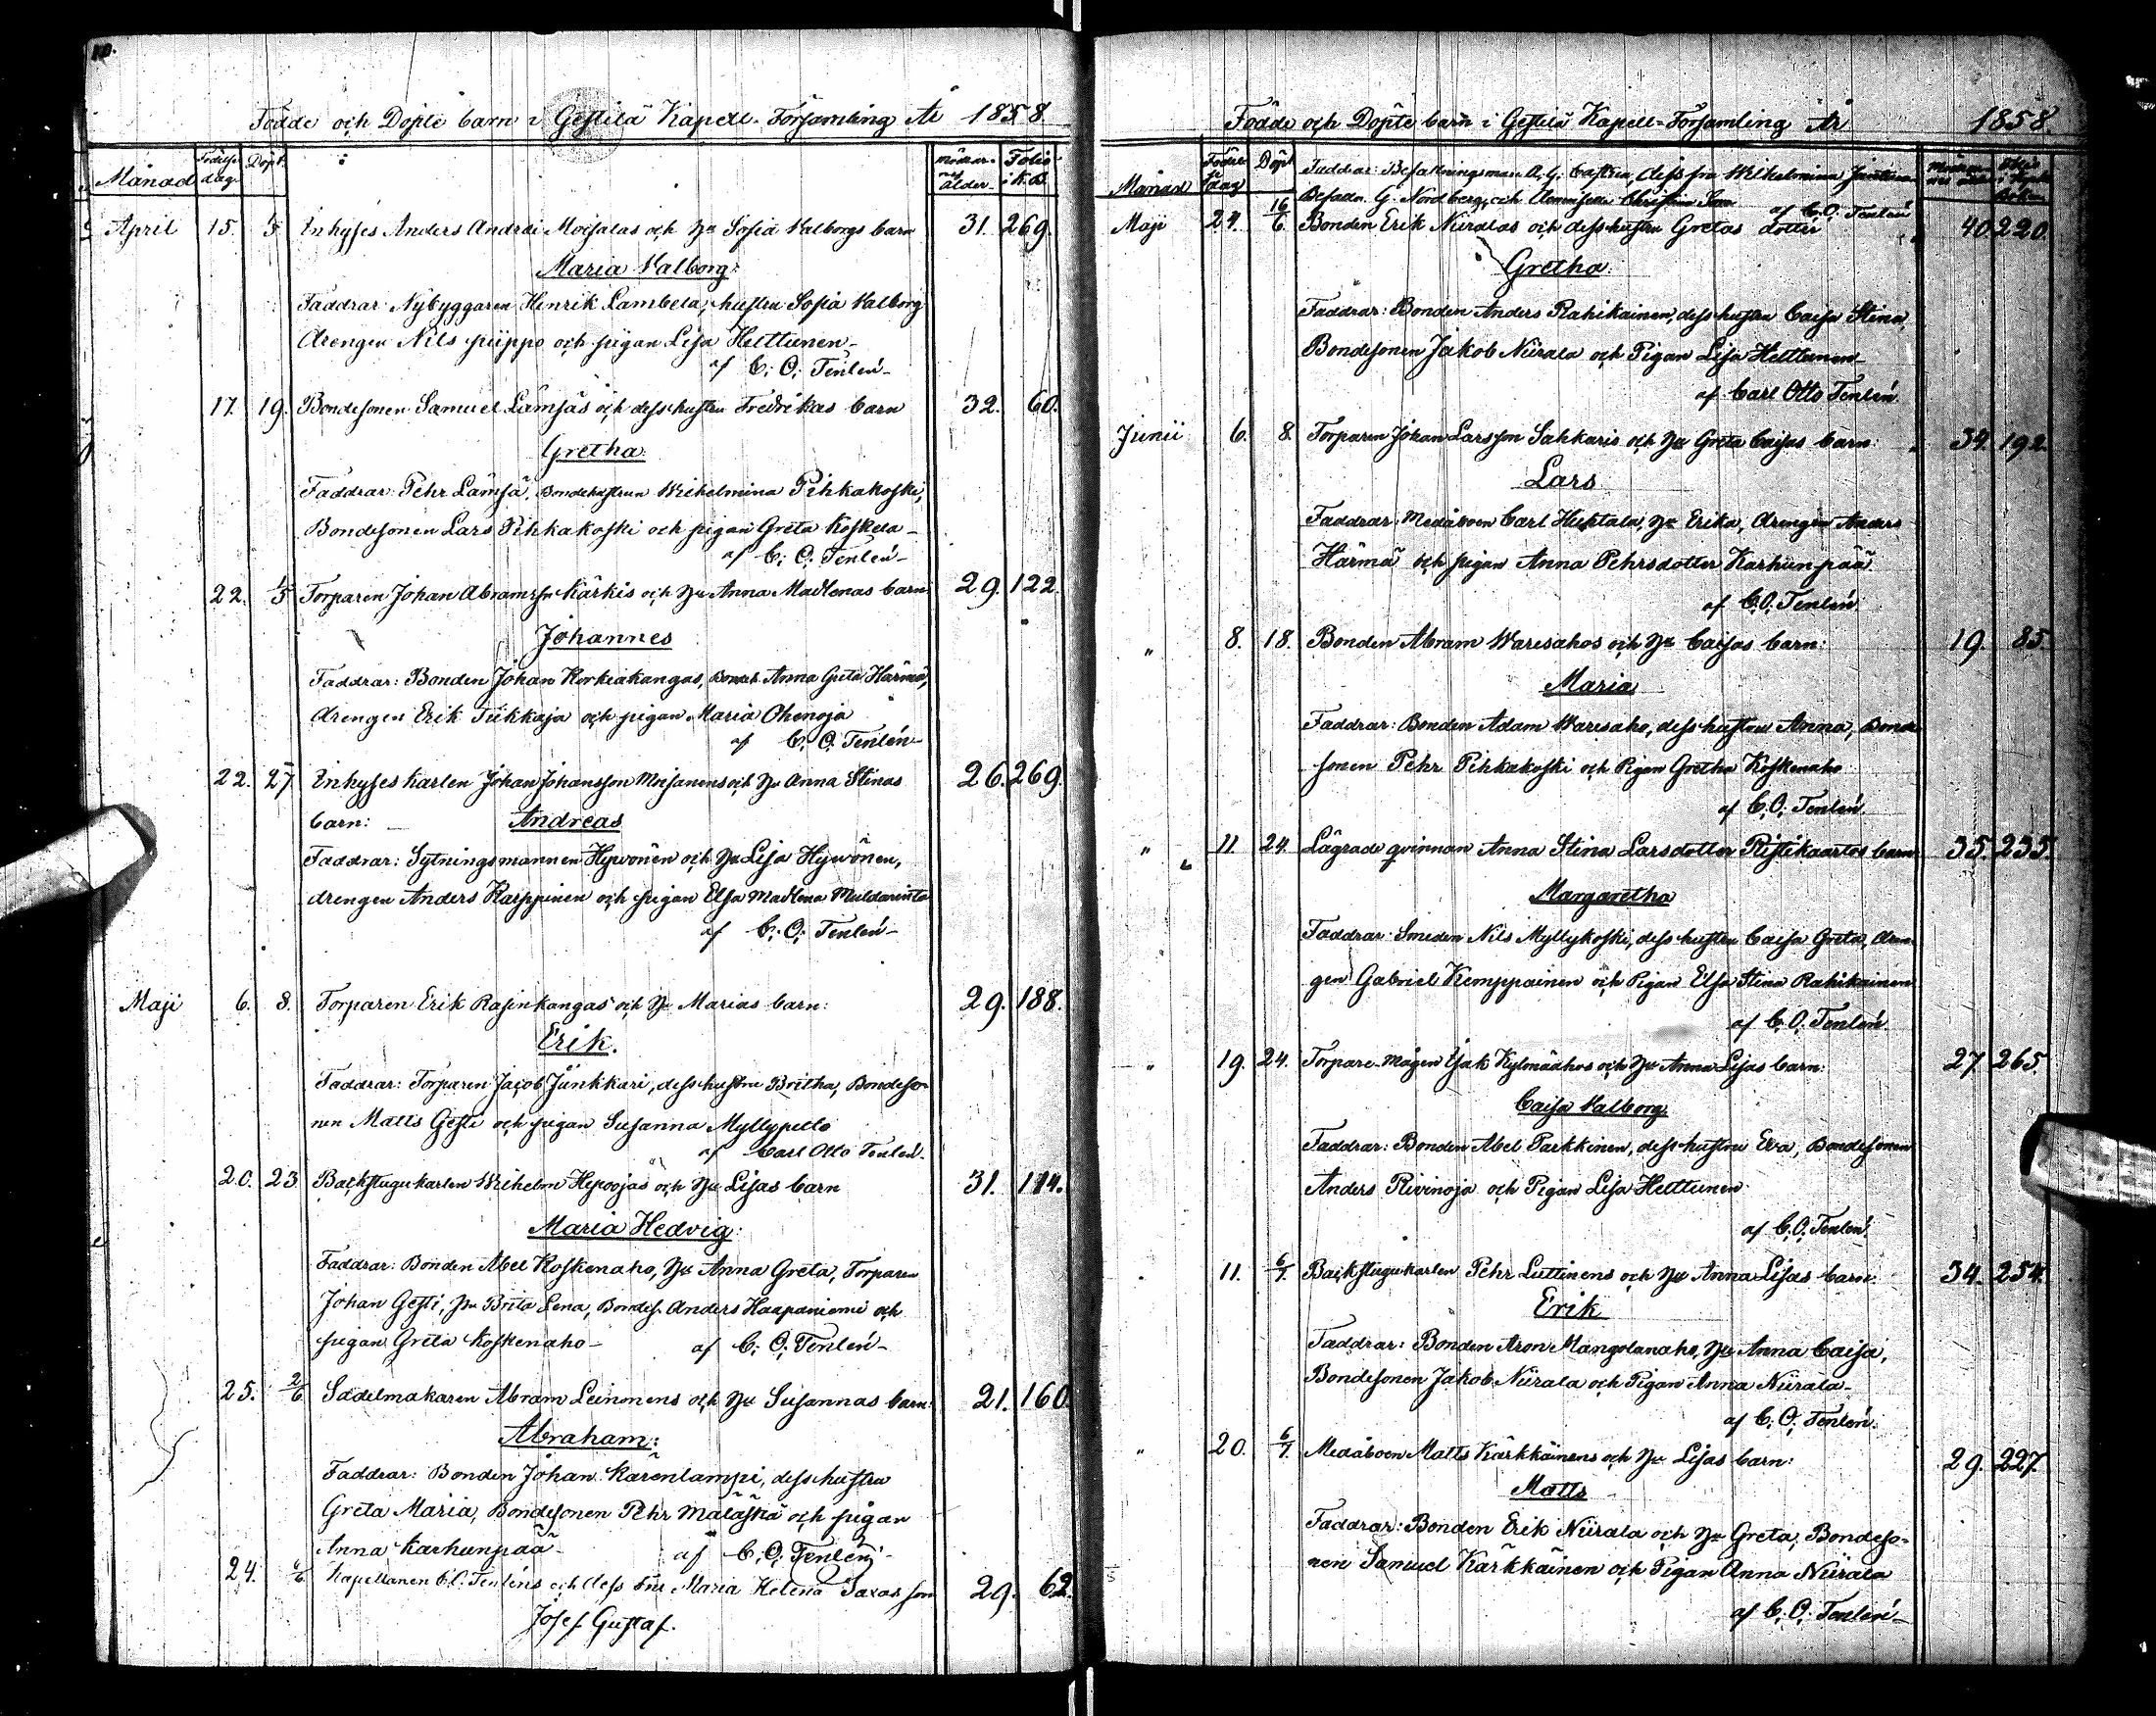 10.
Födde och Döpte barn i Gestilä Kapell-Församling År 1858
Månad Födelse dag Döpt. Mödrarnes ålder Folio i K.B.
April 15. Inhyses Anders Andrei Moisalas och Hu Sofia Valborgs barn 31. 269.
Maria Valborg:
Faddrar: Nybyggaren Henrik Lambela, hustru Sofia Valborg
drengen Nils Piippo och pigan Lisa Helttunen-
af C. O. Tenlén-
17. 19. Bondesonen Samuel Lämsäs och dess hustru Fredrikas barn 32. 60.
Gretha:
Faddrar: Pehr Lämsä, Bondehustrun Wilhelmina Pihkakoski,
Bondesonen Lars Pihkakoski och pigan Greta Koskela-
af C. O. Tenlén-
22. 1/5 Torparen Johan Abramsson Kärkis och Hu Anna Madlenas barn 29. 122.
Johannes
Faddrar: Bonden Johan Korkiakangas, Bondeh. Anna Greta Härmä,
drengen Erik Tiikkaja och pigan Maria Ohenoja
af C. O. Tenlén-
22. 27 Inhyses karlen Johan Johansson Moisanens och Hu Anna Stinas 26. 269.
barn: Andreas
Faddrar: Sytningsmannen Hyvönen och Hu Lisa Hyvönen,
drengen Anders Karppinen och pigan Elsa Madlena Muldarinta
af C. O. Tenlén-
Maji 6. 8. Torparen Erik Rasinkangas och Hu Marias barn: 29. 188.
Erik.
Faddrar: Torparen Jacob Junkkari, dess hustru Britha, Bondeso-
nen Matts Gesti och pigan Susanna Myllypello
af Carl Otto Tenlén.
20. 23 Backstugukarlen Wilhelm Hepoojas och Hu Lisas barn 31. 114.
Maria Hedvig:
Faddrar: Bonden Abel Koskenaho, Hu Anna Greta, Torparen
Johan Gesti, Hu Brita Lena, Bondes. Anders Haapaniemi och
pigan Greta Koskenaho- af C. O. Tenlén-
25. 2/6 Sadelmakaren Abram Leinonens och Hu Susannas barn: 21. 160.
Abraham:
Faddrar: Bonden Johan Karenlampi, dess hustru
Greta Maria, Bondesonen Pehr Mäläskä och pigan
Anna Karhunpää- af C. O. Tenlén-
24. Kapellanen C. O. Tenléns och dess Fru Maria Helena Saxas son 29. 62.
Josef Gustaf.
Födde och Döpte barn i Gestilä Kapell-Församling År 1858.
Månad Födelse dag Döpt Faddrar: Befallningsman A. G. Castrén, dess fru Wilhelmina
Befalln. G. Nordberg och Christina af C. O. Tenlén
Maji 24. 16/6 Bonden Erik Niiralas och dess hustru Gretas dotter 40 220.
Gretha:
Faddrar: Bonden Anders Rahikainen, dess hustru Caisa Stina,
Bondesonen Jakob Niirala och Pigan Lisa Helttunen-
af Carl Otto Tenlén.
Junii 6. 8 Torparen Johan Larsson Sahkaris och Hu Greta Caisas barn: 34. 192.
Lars
Faddrar: Medåboen Carl Huhtala, Hu Erika, drengen Anders
Härmä och pigan Anna Pehrsdotter Karhunpää
af C. O. Tenlén
" 8. 18. Bonden Abram Waresahos och Hu Caisas barn: 19. 85.
Maria
Faddrar: Bonden Adam Waresaho, dess hustru Anna, Bonde
sonen Pehr Pihkakoski och Pigan Gretha Koskenaho
af C. O. Tenlén.
" 11. 24. Lägrade qvinnan Anna Stina Larsdotter Ristikaartos barn 35. 235.
Margaretha
Faddrar: Smeden Nils Myllykoski, dess hustru Caisa Greta, dren-
gen Gabriel Kemppainen och Pigan Elsa Stina Rahikainen
af C. O. Tenlén
" 19. 24. Torpare-mågen Isak Kylmäahos och Hu Anna Lisas barn: 27 265.
Caisa Valborg.
Faddrar: Bonden Abel Parkkinen, dess hustru Eva, Bondesonen
Anders Rivinoja och Pigan Lisa Helttunen
af C. O. Tenlén.
11. 6/7. Backstugukarlen Pehr Luttinens och Hu Anna Lisas barn: 34. 254.
Erik
Faddrar: Bonden Aron Mangolanaho, Hu Anna Caisa,
Bondesonen Jakob Niirala och Pigan Anna Niirala-
af C. O. Tenlén:
" 20. 6/7. Medåboen Matts Kärkkäinens och Hu Lisas barn: 29. 227.
Matts
Faddrar: Bonden Erik Niirala och Hu Greta, Bondeso-
nen Samuel Kärkkäinen och Pigan Anna Niirala
af C. O. Tenlén-